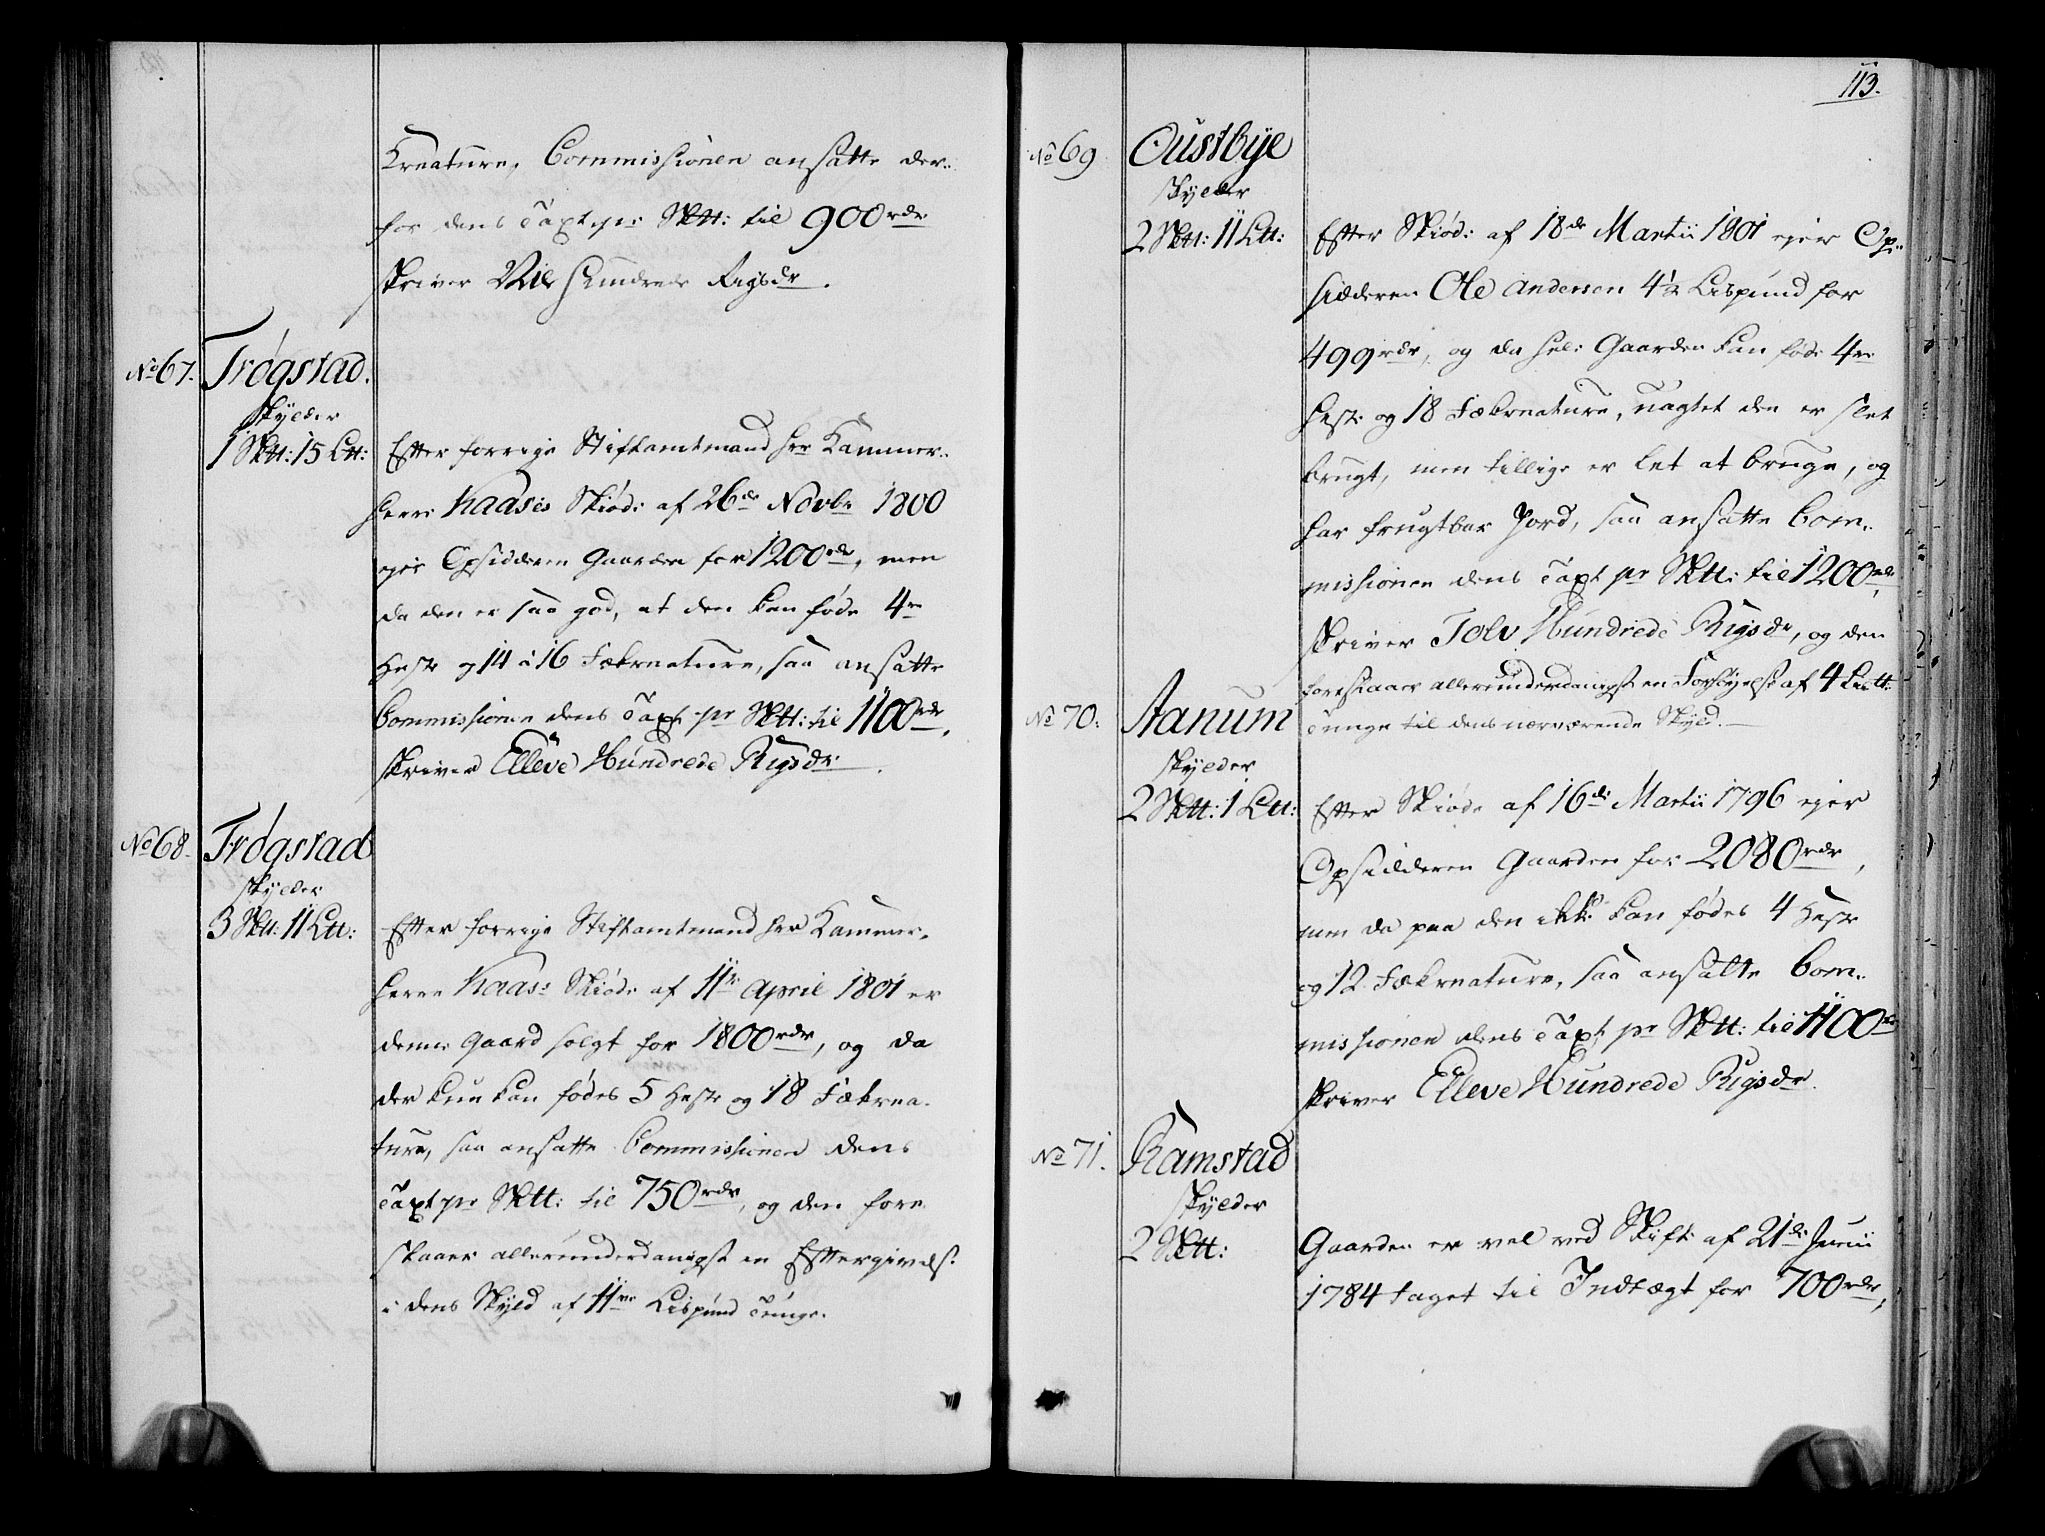 Kreature, Commissionen ansatte der-
for dens Taxt pr Sktt: til 900 rdr
skriver Nie Hundrede Rigsdr.
No 67. Trøgstad.
skylder
1 Sktt: 15 Ltt:
Efter forrige Stiftamtmand Her Kammer-
Herre Kaases Skiøde af 26de Novbr 1800
ejer Opsidderen Gaarden for 1200 rdr, men
da den er saa god, at den kan føde 4re
Heste og 14 a 16 Fækreature, saa ansatte
Commissionen dens Taxt pr Sktt: til 1100 rdr,
skriver Elleve Hundrede Rigsdr.
No 68. Trøgstad
skylder
3 Sktt: 11 Ltt:
Efter forrige Stiftamtmand Her Kammer-
Herre Kaas's Skiøde af 11te April 1801 er
denne Gaard solgt for 1800 rdr, og da
der kun kan fødes 5 Heste og 18 Fækrea-
ture, saa ansatte Commissionen dens
Taxt pr Sktt: til 750 rdr, og den fore
slaaer allerunderdanigst en Eftergivelse
i dens Skyld af 11ve Lispund Tunge.
113.
No 69 Oustbye
skylder
2 Sktt: 11 Ltt:
Efter Skiøde af 18de Martii 1801 ejer Op-
sidderen Ole Andersen 4½ Lispund for
499 rdr, og da hele Gaarden kan føde 4re
Heste og 18 Fækreature, uagtet den er slet
brugt, men tillige er let at bruge, og
har frugtbar Jord, saa ansatte Com-
missionen dens Taxt pr Sktt: til 1200 rdr,
skriver Tolv Hundrede Rigsdr, og den
foreslaaer allerunderdanigst en Forhøyelse af 4 Ltt:
Tunge til dens nærværende Skyld.
No 70. Aanum
skylder
2 Sktt: 1 Ltt:
Efter Skiøde af 16de Martii 1796 ejer
Opsidderen Gaarden for 2080 rdr,
men da paa den ikke kan fødes 4 Heste
og 12 Fækreature, saa ansatte Com-
missionen dens Taxt pr Sktt: til 1100 rdr
skriver Elleve Hundrede Rigsdr.
No 71. Ramstad
skylder
2 Sktt:
Gaarden er vel ved Skifte af 21de Junii
1784 taget til Indtægt for 700 rdr,